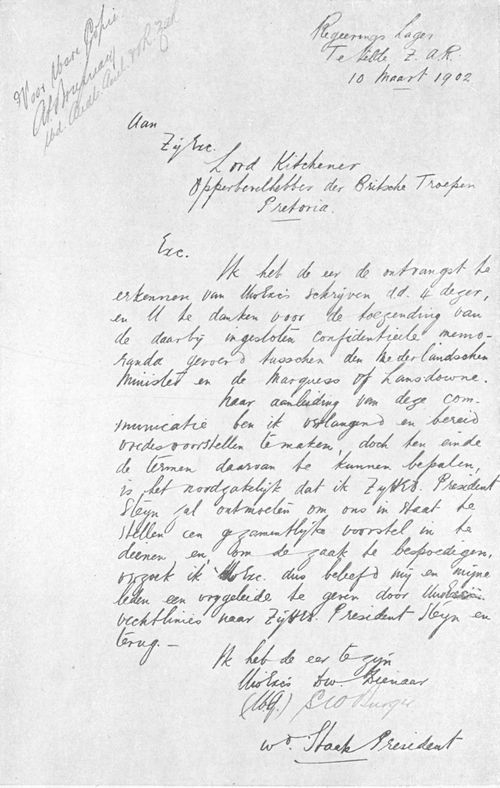 Voor Ware Copie
Regeerings Lager
Te Velde Z.A.R.
10 Maart 1902
Aan
ZijExc.
Lord Kitchener
Opperbevelhebber der Britsche Troepen
Pretoria.
Exc.
Ik heb de eer de ontvangst te
erkennen van UwExcs schrijven d.d. 4 dezer,
en U te danken voor de toezending van
de daarbij ingesloten confidentieele memo-
randa gevoerd tusschen den Nederlandschen
Minister en de Marquess of Lansdowne.
Naar aanleiding van deze com-
municatie ben ik verlangend en bereid
vredesvoorstellen te maken, doch ten einde
de termen daarvan te kunnen bepalen,
is het noodzakelijk dat ik ZijHEd. President
Steijn zal ontmoeten om ons in staat te
stellen een gezamentlijk voorstel in te
dienen en om de zaak te bespoedigen,
verzoek ik UwExc. dus beleefd mij en mijne
leden een vrijgeleide te geven door UwExcs
vechtlinies naar ZijHEd. President Steijn en
terug.—
Ik heb de eer te zijn
UwExcs Dw Dienaar
(W.G.) S W Burger
wd. Staats President